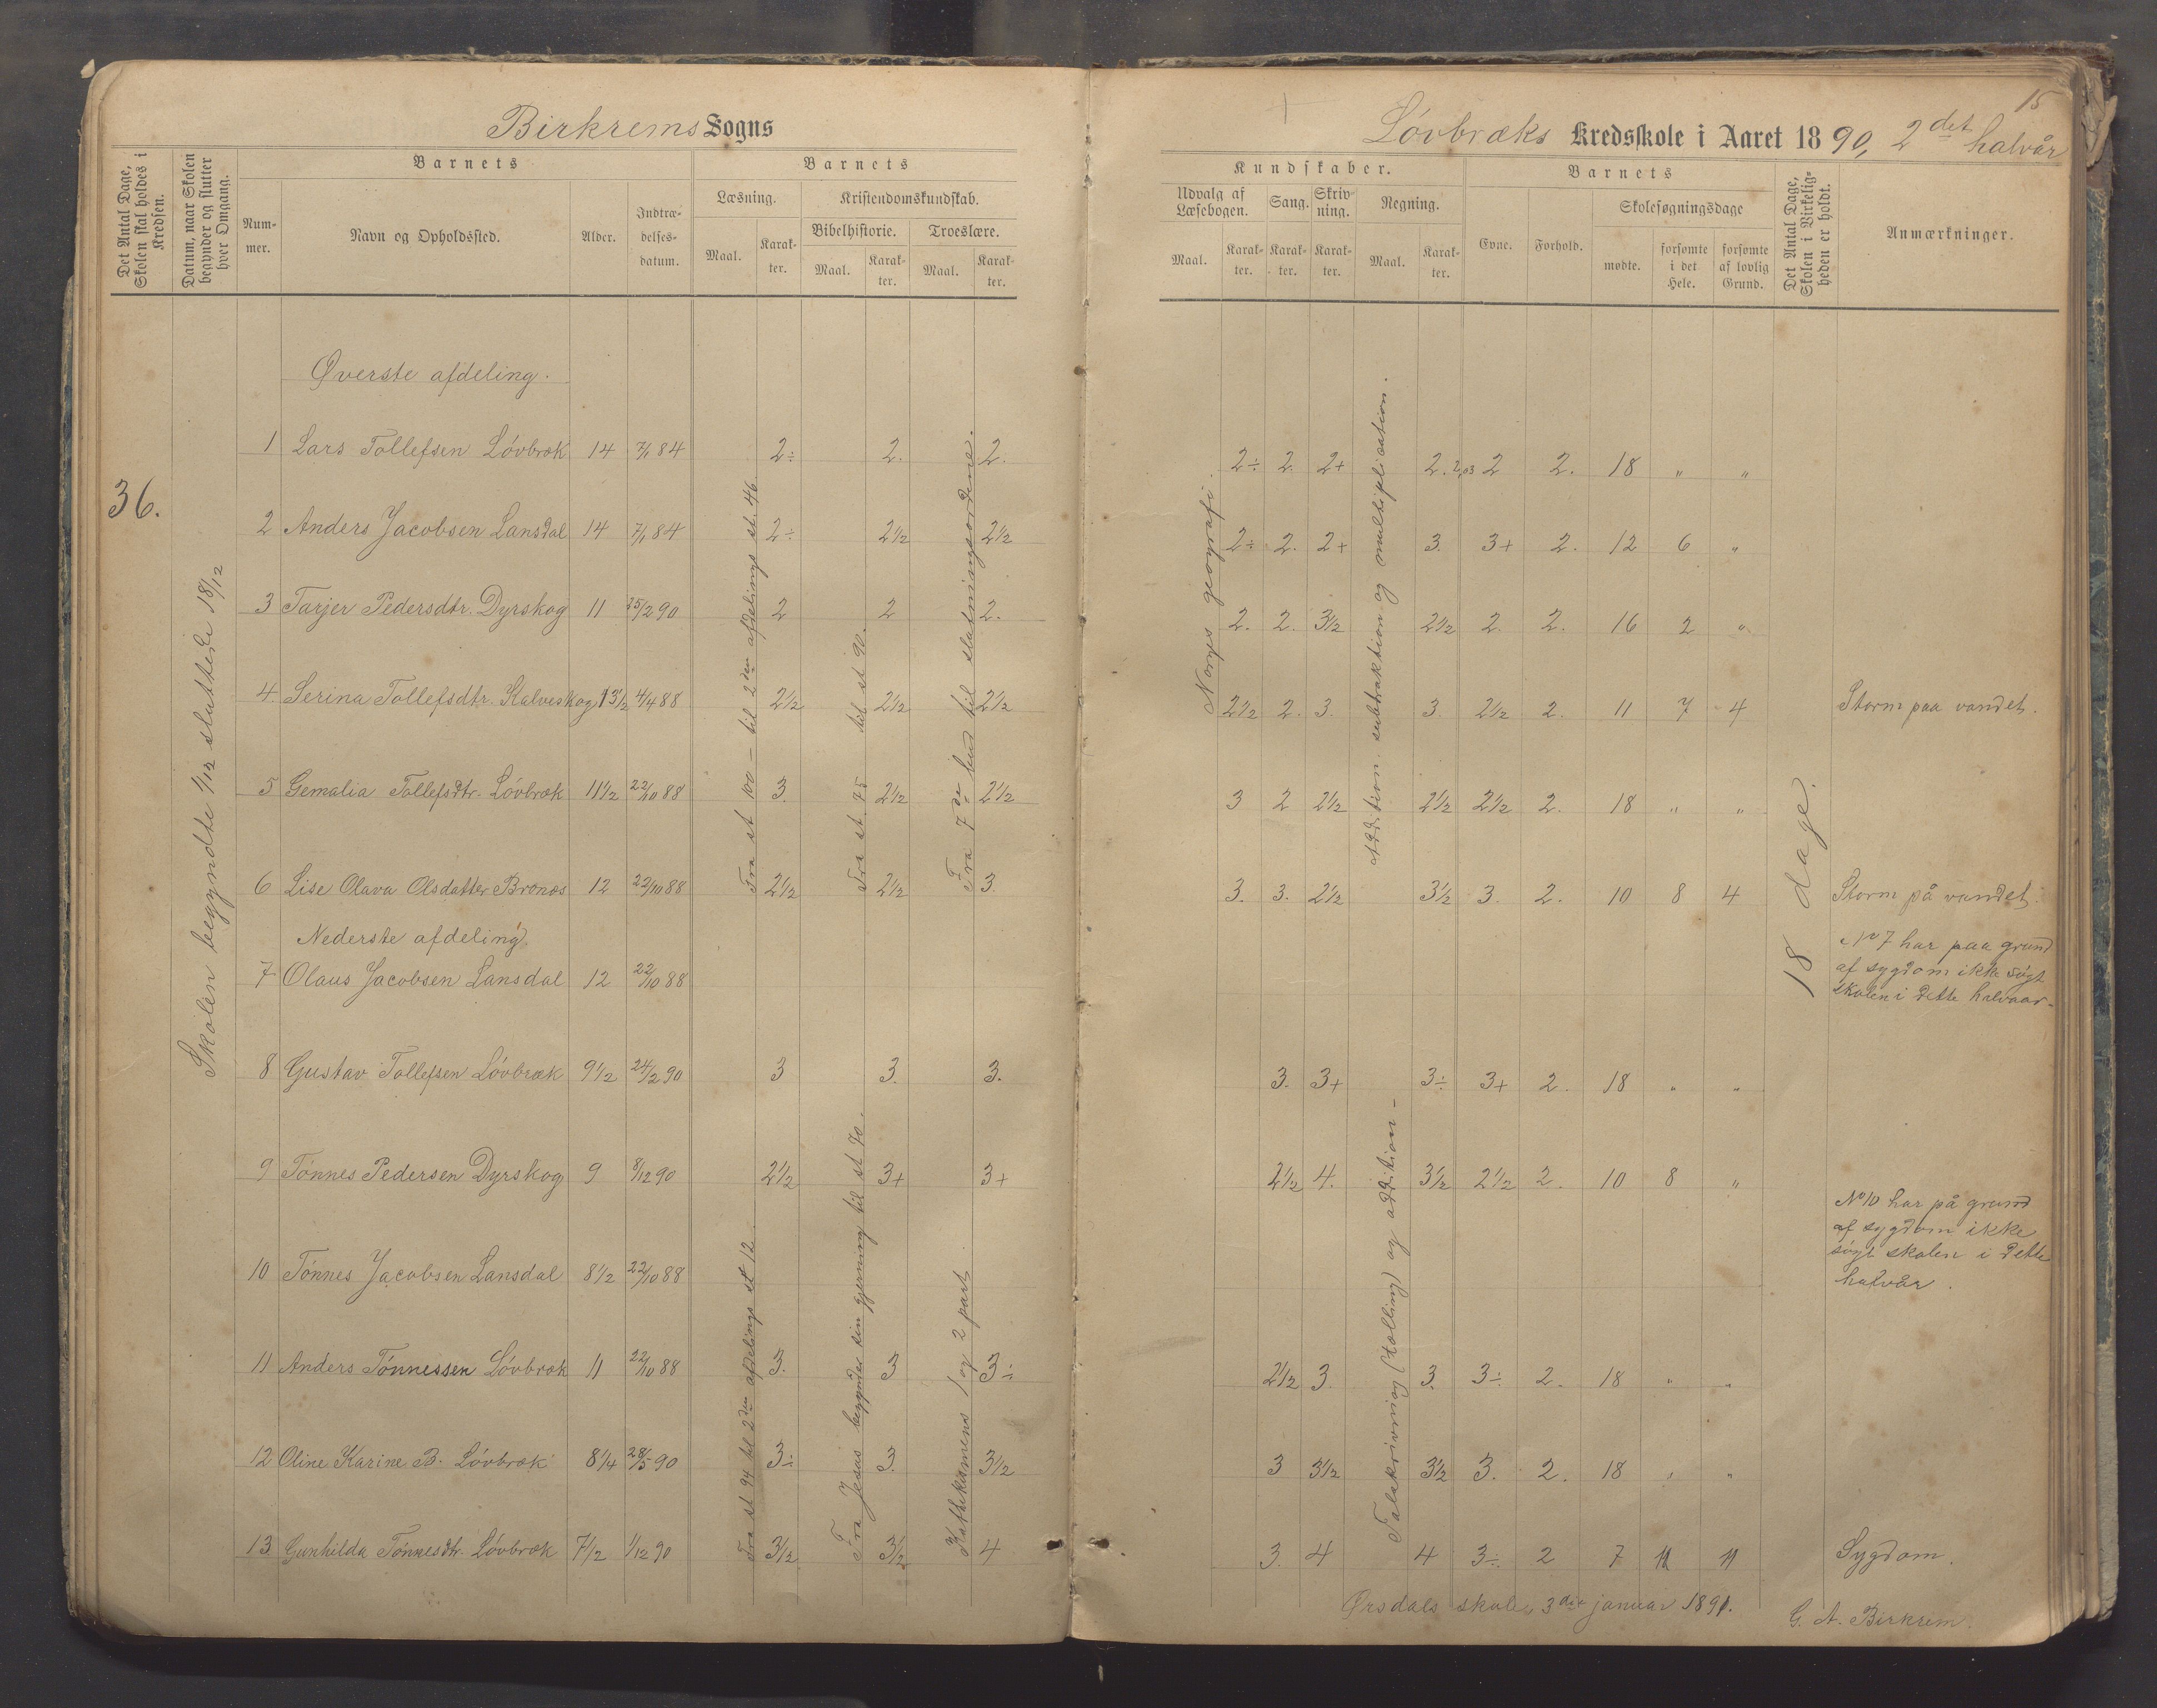 Birkrems Sogns
Det Antal Dage, Skolen skal holdes i Kredsen.
Datum, naar Skolen begynder og slutter hver Omgang.
Barnets
Num-mer.
Navn og Opholdssted.
Alder.
Indtræ-delses-datum.
Barnets
Læsning.
Kristendomskundskab.
Bibelhistorie.
Troeslære.
Maal.
Karak-ter.
Maal.
Karak-ter.
Maal.
Karak-ter.
36.
Skolen begyndte 1/12 sluttede 18/12
Øverste afdeling.
1 Lars Tollefsen Lövbræk 14 7/1 84 2÷ 2. 2.
2 Anders Jacobsen Lansdal 14 7/1 84 2÷ 2½ 2½
3 Tarjer Pedersdtr. Dyrskog 11 25/2 90 2 2 2.
4. Serina Tollefsdtr. Kalveskog 13½ 4/4 88 2½ 2½ 2½
5 Gemalia Tollefsdtr. Lövbræk 11½ 22/10 88 3. 2½ 2½
6 Lise Olava Olsdatter Bronæs 12 22/10 88 2½ 2½ 3.
Fra st 100 - til 2den afdelings st. 46
Fra st 75 til st 90.
Fra 7de bud til slutningsordene.
Nederste afdeling
7 Olaus Jacobsen Lansdal 12 22/10 88
8 Gustav Tollefsen Lövbræk 9½ 24/2 90 3 3. 3.
9 Tönnes Pedersen Dyrskog 9 8/12 90 2½ 3+ 3+
10 Tönnes Jacobsen Lansdal 8½ 22/10 88
11 Anders Tönnessen Lövbræk 11 22/10 88 3. 3 3÷
12 Oline Karine B. Lövbræk 8¼ 28/5 90 3÷ 3. 3½
13 Gunhilda Tönnesdtr. Lövbræk 7½ 1/12 90 3½ 3½ 4
Fra st 94 til 2den afdelings st 12.
Fra Jesus begynder sin gjerning til st 70.
Kathekismens 1 og 2 part
15
Lövbræks Kredsskole i Aaret 1890, 2det halvår
Kundskaber.
Udvalg af Læsebogen.
Sang.
Skriv-ning.
Regning.
Maal.
Karak-ter.
Karak-ter.
Karak-ter.
Maal.
Karak-ter.
Barnets
Evne.
Forhold.
Skolesøgningsdage
mødte.
forsømte i det Hele.
forsømte af lovlig Grund.
Det Antal Dage, Skolen i Virkelig-heden er holdt.
Anmærkninger.
Norges geografi.
Addition subtraktion og multiplication.
2÷ 2. 2+ 2. 2,03 2 2. 18 " "
2÷ 2. 2+ 3. 3+ 2. 12 6 "
2. 2. 3½ 2½ 2. 2. 16 2 "
2½ 2. 3. 3. 2½ 2. 11 7 4 Storm paa vandet.
3 2 2½ 2½ 2½ 2. 18 " "
3. 3. 2½ 3½ 3. 2. 10 8 4 Storm på vandet.
18 dage.
No 7 har paa grund
af sygdom ikke søgt
skolen i dette halvaar-
Talskrivning (tælling) og addition-
3. 3+ 3÷ 3+ 2. 18 " "
2½ 4. 3½ 2½ 2. 10 8 "
No 10 har på grund
af sygdom ikke
søgt skolen i dette
halvår.
2½ 3. 3. 3÷ 2. 18 " "
3 3½ 3½ 3. 2. 18 " "
3. 4 4 3÷ 2 7 11 11 Sygdom.
Ørsdals skole, 3die januar 1891.
G. A. Birkrem.